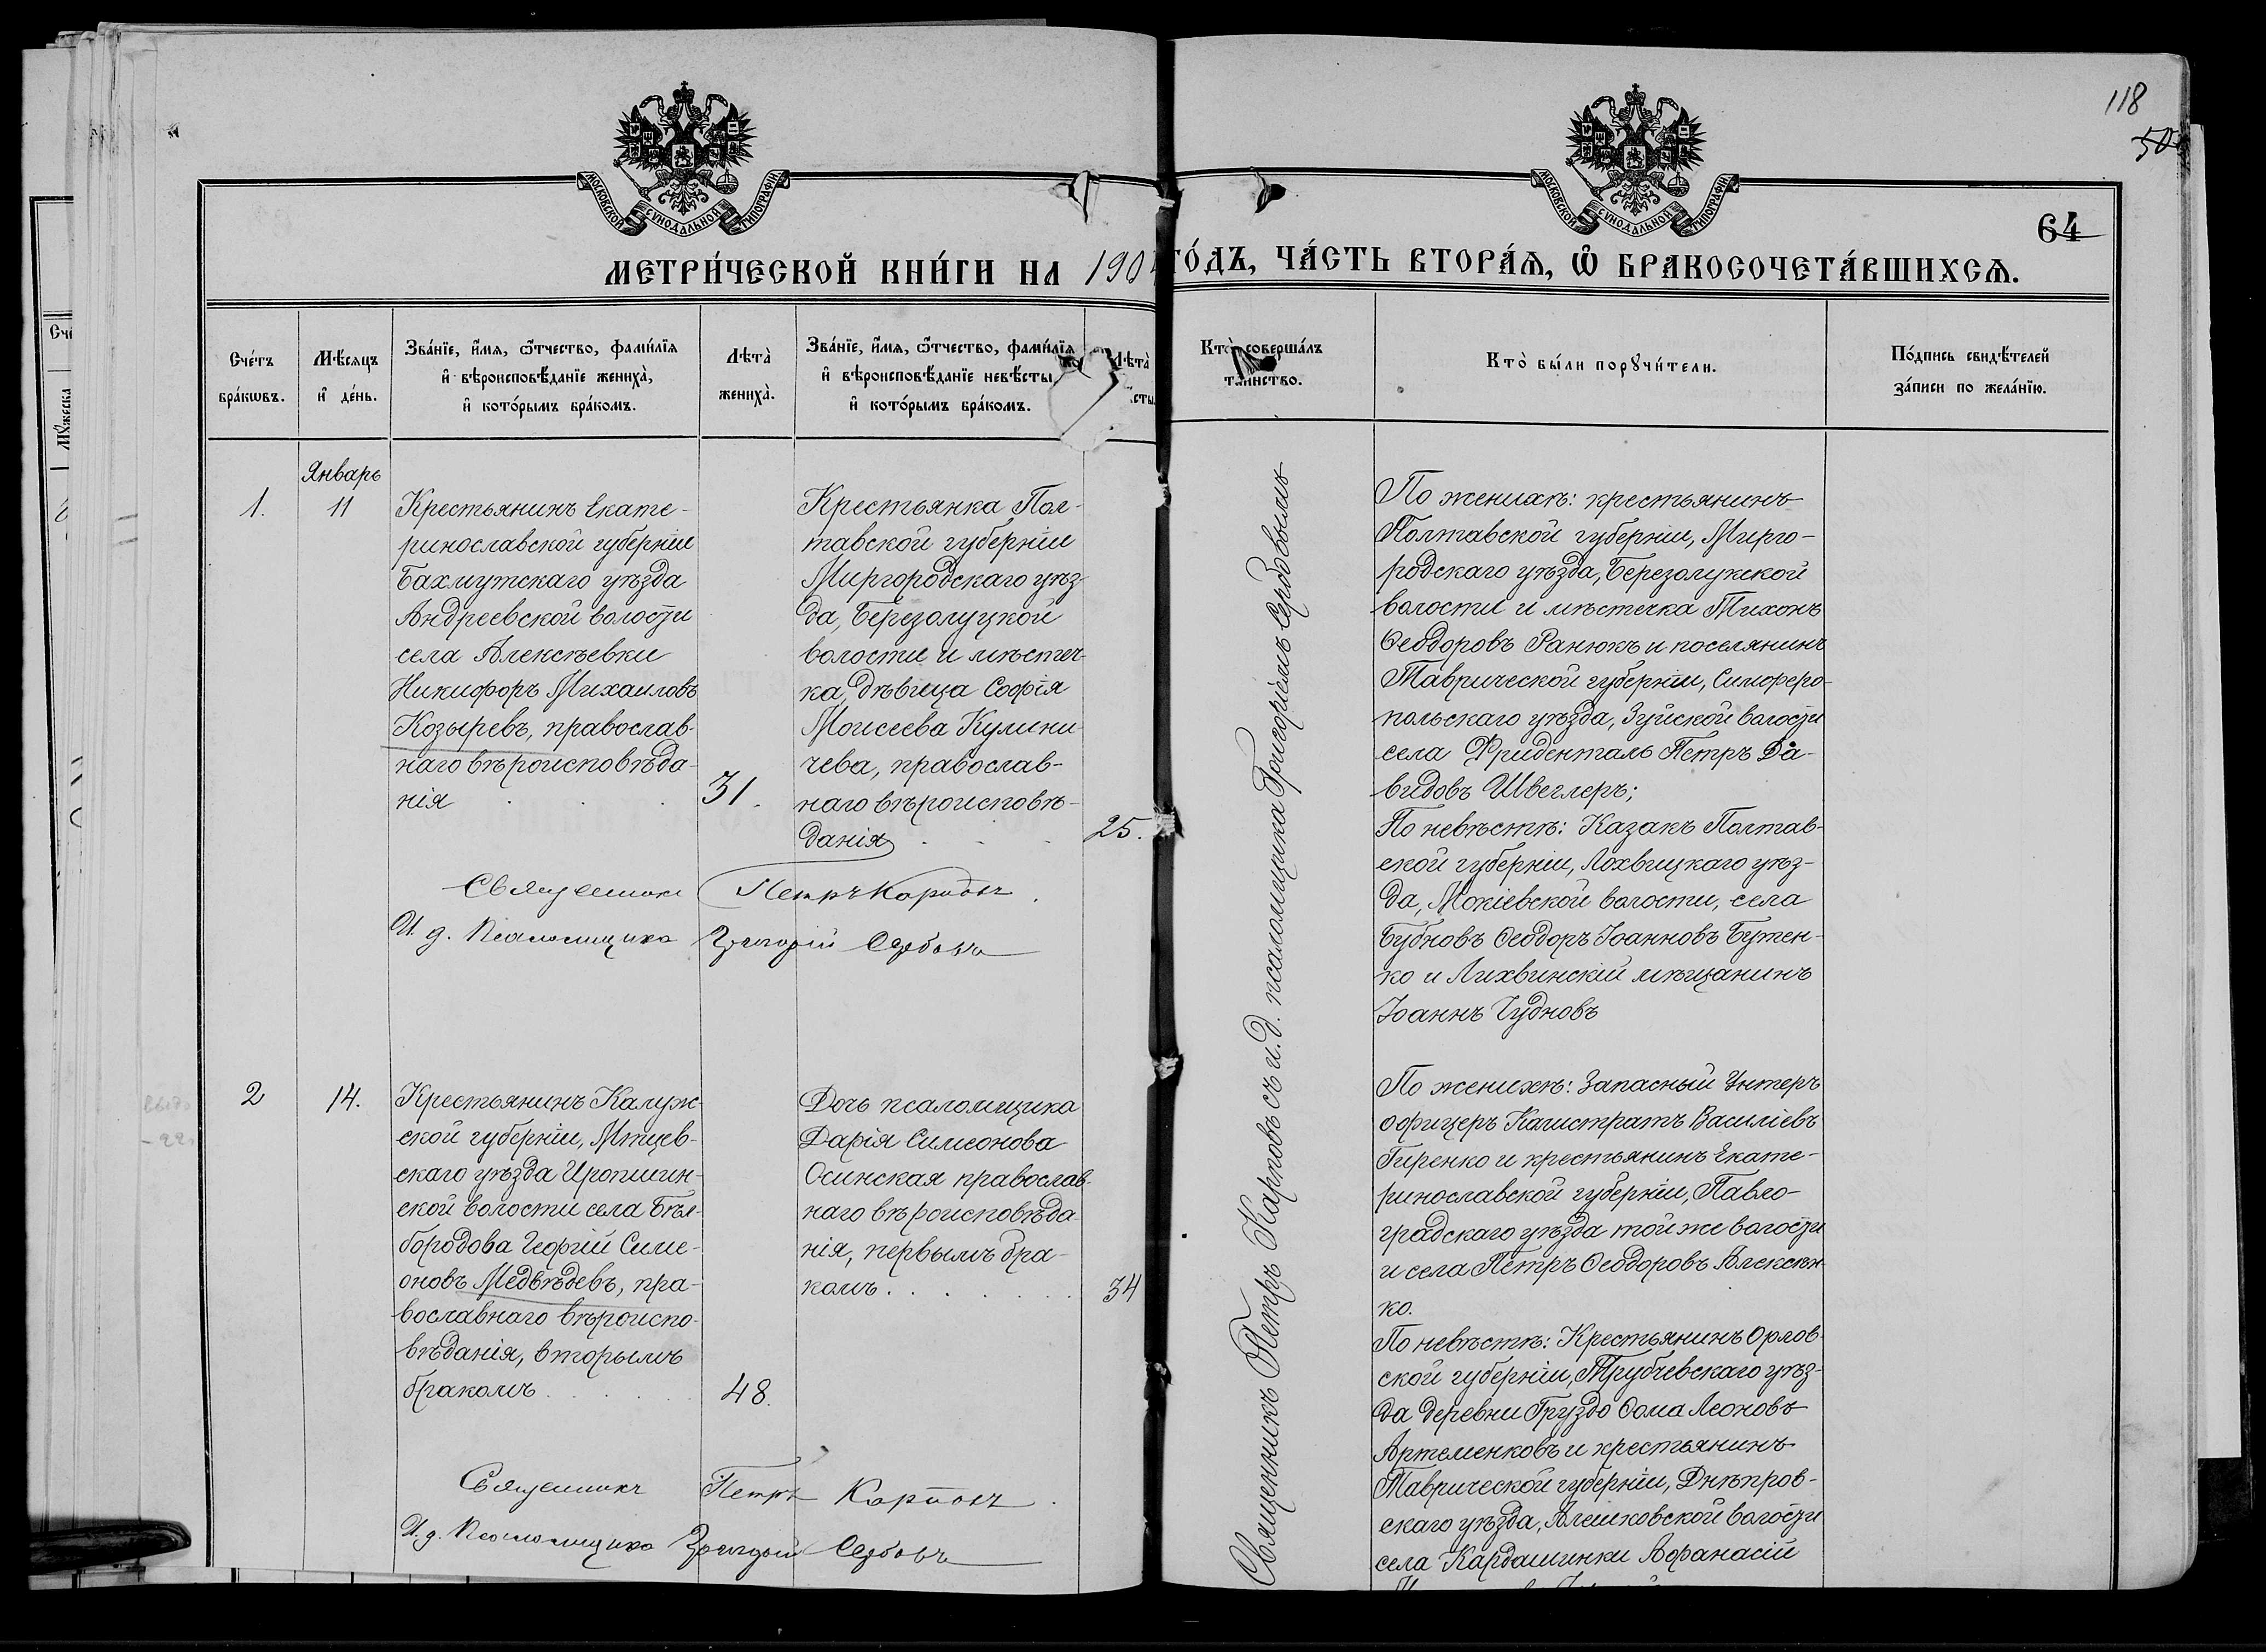 118
50
МОСКОВСКОЙ СѴНОДАЛЬНОЙ ТИПОГРАФІИ.
МОСКОВСКОЙ СѴНОДАЛЬНОЙ ТИПОГРАФІИ.
64
МЕТРИ́ЧЕСКОЙ КНИ́ГИ НА 190
ГО́ДЪ, ЧА́СТЬ ВТОРА́Ѧ, Ѡ҆ БРАКОСОЧЕТА́ВШИХСѦ.
Сче́тъ
бра́кѡвъ.
Мѣ́сяцъ
и҆ де́нь.
Зва́нїе, и҆́мѧ, ѻ҆́тчество, фами́лїѧ
и҆ вѣроисповѣ́данїе жениха̀,
и҆ кото́рымъ бра́комъ.
Лѣта̀
жениха̀.
Зва́нїе, и҆́мѧ, ѻ҆́тчество, фами́лїѧ
и҆ вѣроисповѣ́данїе невѣ́сты,
и҆ кото́рымъ бра́комъ.
Лѣта̀
Кто̀ соверша́лъ
та́инство.
Кто̀ бы́ли порꙋчи́тели.
По́дпись свидѣ́телей
за́писи по жела́нїю.
Январь
1.
11
Крестьянинъ Екате-
ринославской губерніи
Бахмутскаго уѣзда
Андреевской волости
села Алексѣевки
Никифоръ Михаиловъ
Козыревъ, православ-
наго вѣроисповѣда-
нія
31.
Крестьянка Пол-
тавской губерніи
Миргородскаго уѣз-
да, Березолуцкой
волости и мѣстеч-
ка, дѣвица Софія
Моисеева Кулини-
чева, православ-
наго вѣроисповѣ-
данія
25.
Священникъ Петръ Карповъ
И. д. Псаломщика Григорій Сербовъ
Священникъ Петръ Карповъ съ и. д. псаломщика Григоріемъ Сербовымъ
По женихѣ: крестьянинъ
Полтавской губерніи, Мирго-
родскаго уѣзда, Березолужской
волости и мѣстечка Тихонъ
Ѳеодоровъ Ранюкъ и поселянинъ
Таврической губерніи, Симферо-
польскаго уѣзда, Зуйской волости
села Фриденталь Петръ Да-
видовъ Швеглеръ;
По невѣстѣ: Казакъ Полтав-
ской губерніи, Лохвицкаго уѣз-
да, Мокіевской волости, села
Бубновъ Ѳеодоръ Іоанновъ Бутен-
ко и Лихвинскій мѣщанинъ
Іоаннъ Чудновъ
2
14.
Крестьянинъ Калуж-
ской губерніи, Мѣщев-
скаго уѣзда
ской волости села Бѣл-
бородова Георгій Симе-
оновъ Медвѣдевъ, пра-
вославнаго вѣроиспо-
вѣданія, вторымъ
бракомъ
48.
Дочь псаломщика
Дарія Симеонова
Осинская православ-
наго вѣроисповѣда-
нія, первымъ бра-
комъ
34
Священникъ Петръ Карповъ
И. д. Псаломщика Григорій Сербовъ
По женихѣ: Запасный Унтеръ
офицеръ Калистратъ Василіевъ
Гиренко и крестьянинъ Екате-
ринославской губерніи, Павло-
градскаго уѣзда той же волости
и села Петръ Ѳеодоровъ Алексѣн-
ко.
По невѣстѣ: Крестьянинъ Орлов-
ской губерніи, Трубчевскаго уѣз-
да деревни Груздо Ѳома Леоновъ
Артеменковъ и крестьянинъ
Таврической губерніи, Днѣпров-
скаго уѣзда, Алешковской волости
села Кардашинки Аѳанасій